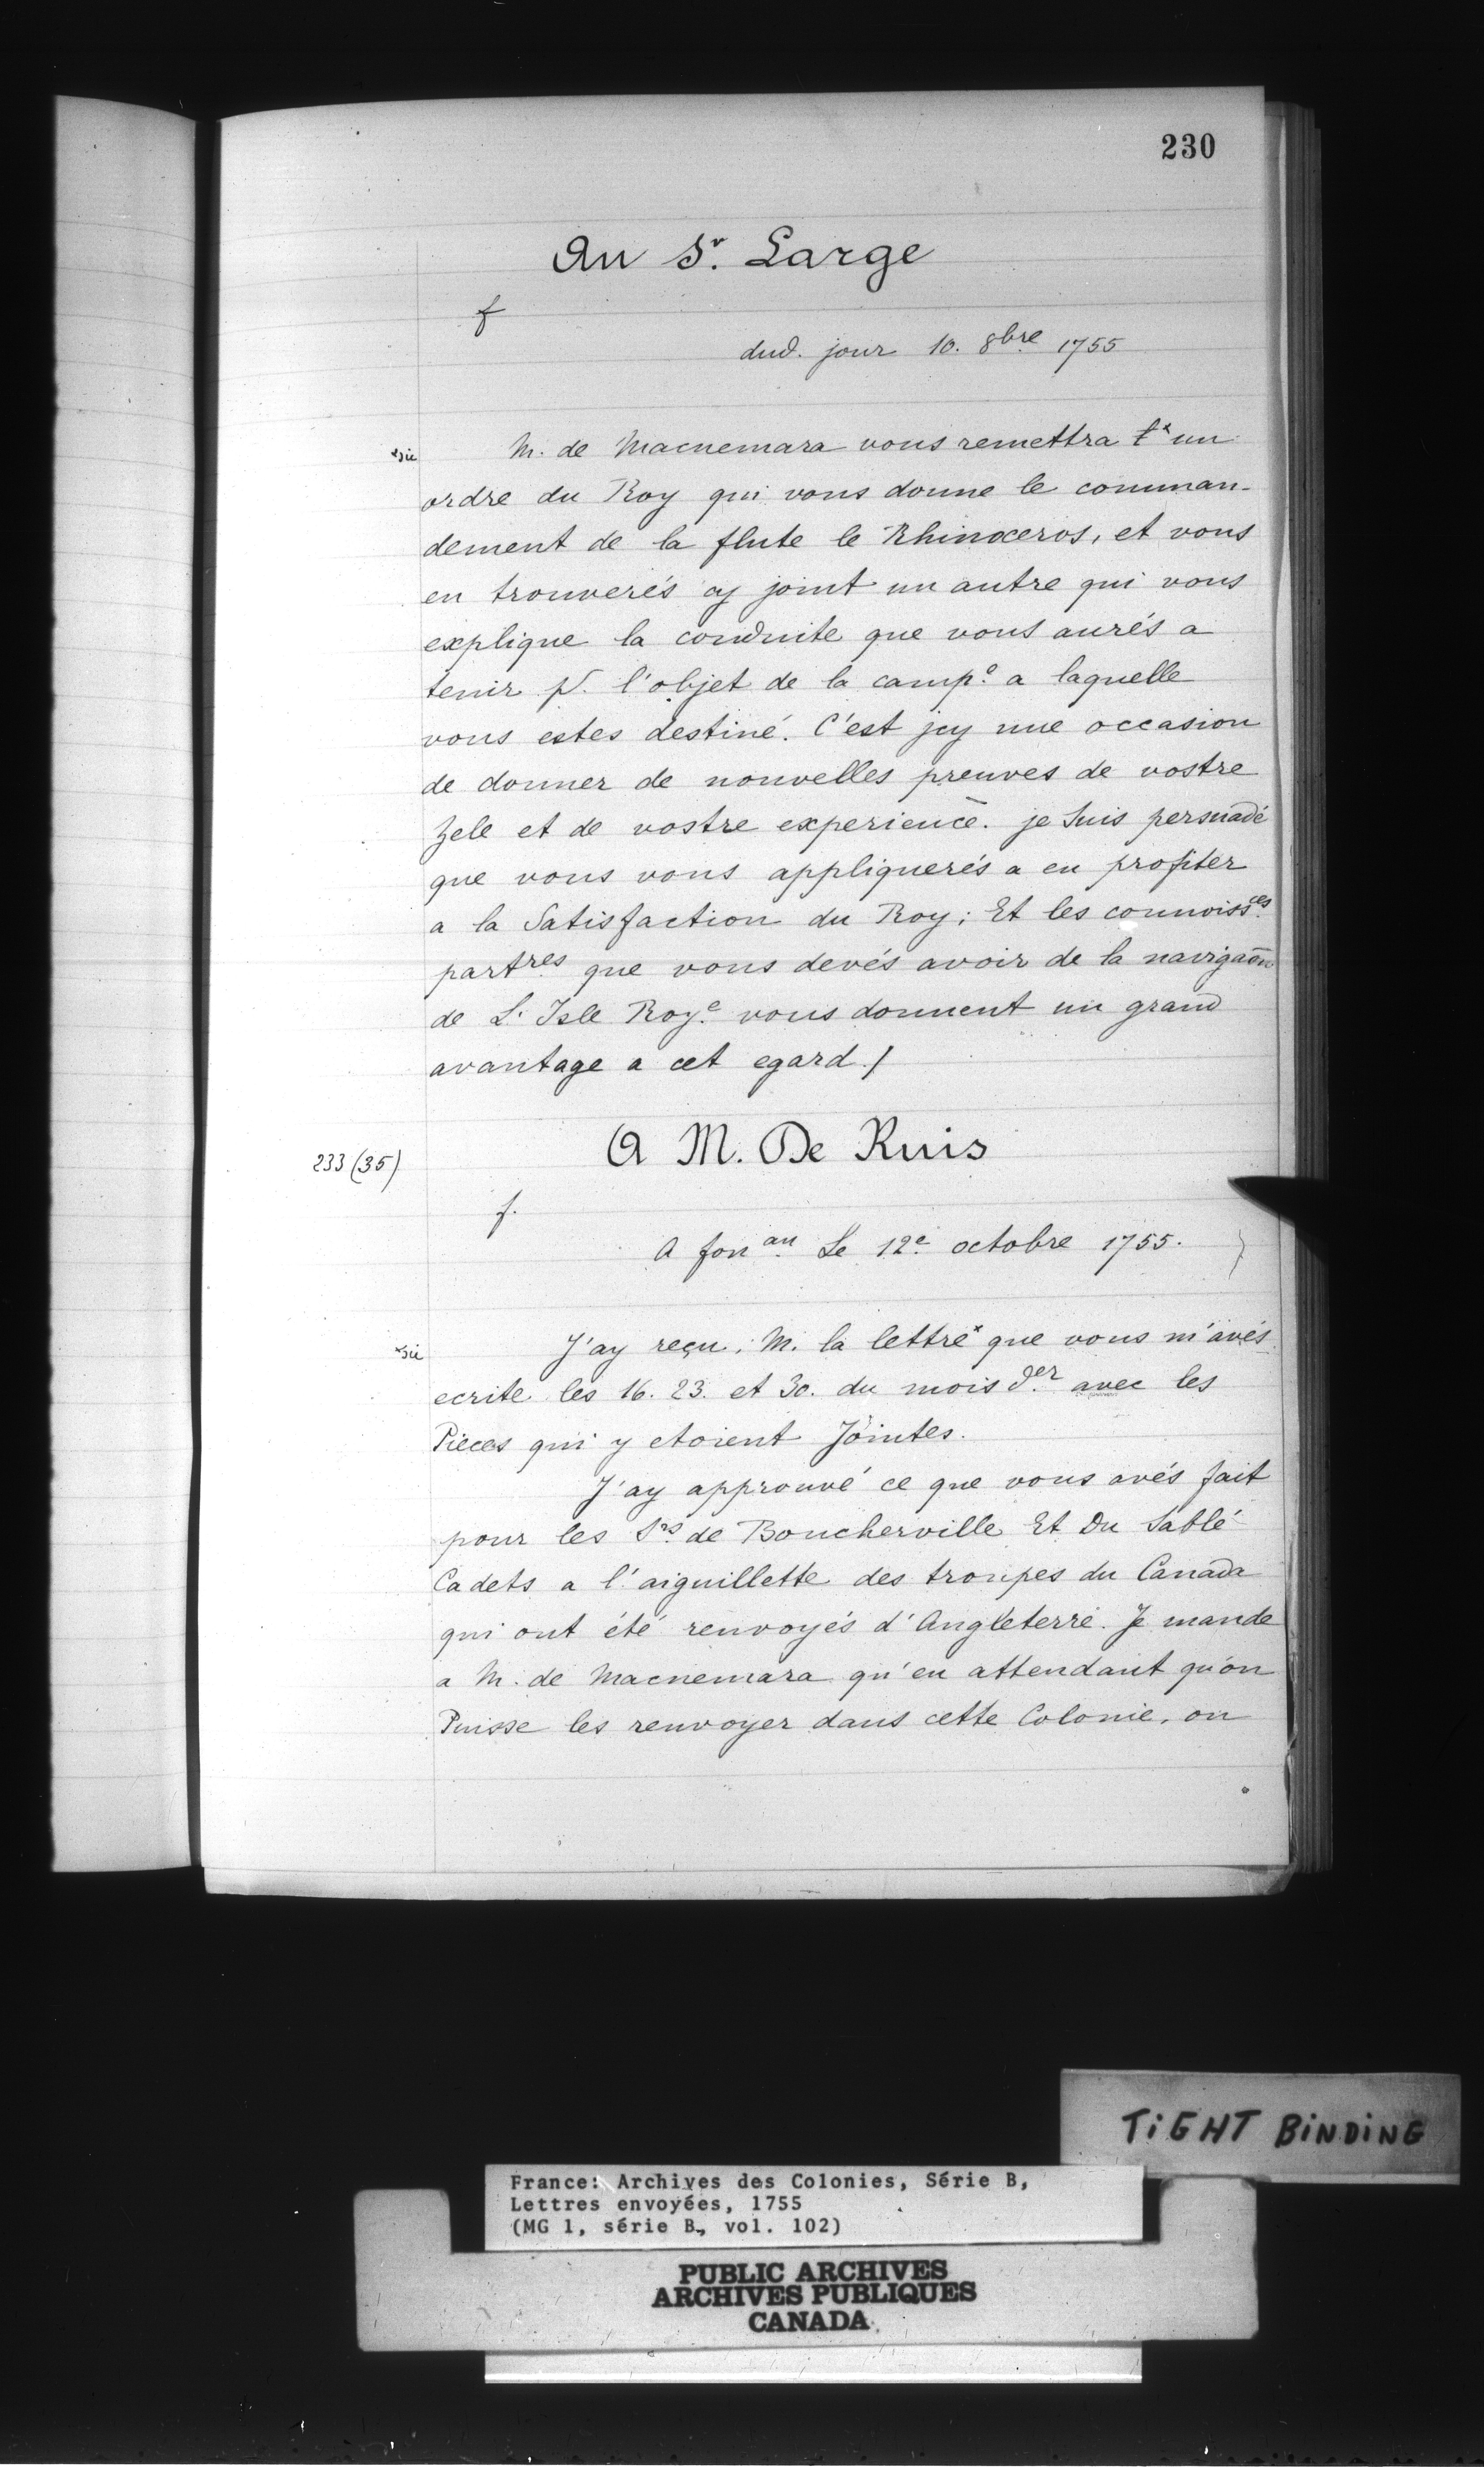 230
Au Sr. Large
f
dud. jour 10. 8bre 1755
*sic
M. de Macnemara vous remettra t* un
ordre du Roy qui vous donne le comman-
dement de la flute le Rhinoceros, et vous
en trouverés cy joint un autre qui vous
explique la conduite que vous aurés a
tenir pr. l'objet de la campe. a laquelle
vous estes destiné. C'est jcy une occasion
de donner de nouvelles preuves de vostre
Zele et de vostre experience. je Suis persuadé
que vous vous appliquerés a en profiter
a la Satisfaction du Roy; Et les connoissces
partres que vous devés avoir de la navigaōn
de L'Isle Roye. vous donnent un grand
avantage a cet egard./
233 (35)
A M. De Ruis
f.
A fonau. Le 12e. octobre 1755.
*sic
J'ay reçu, M. la lettre* que vous m'avés
ecrite les 16. 23. et 30. du mois der avec les
Pieces qui y etoient Jointes.
J'ay approuvé ce que vous avés fait
pour les Srs. de Boucherville Et Du Sablé
Cadets a l'aiguillette des troupes du Canada
qui ont été renvoyés d'Angleterre. Je mande
a M. de Macnemara qu'en attendant qu'on
Puisse les renvoyer dans cette Colonie, on
TiGHT BiNDiNG
France: Archives des Colonies, Série B,
Lettres envoyées, 1755
(MG 1, série B, vol. 102)
PUBLIC ARCHIVES
ARCHIVES PUBLIQUES
CANADA